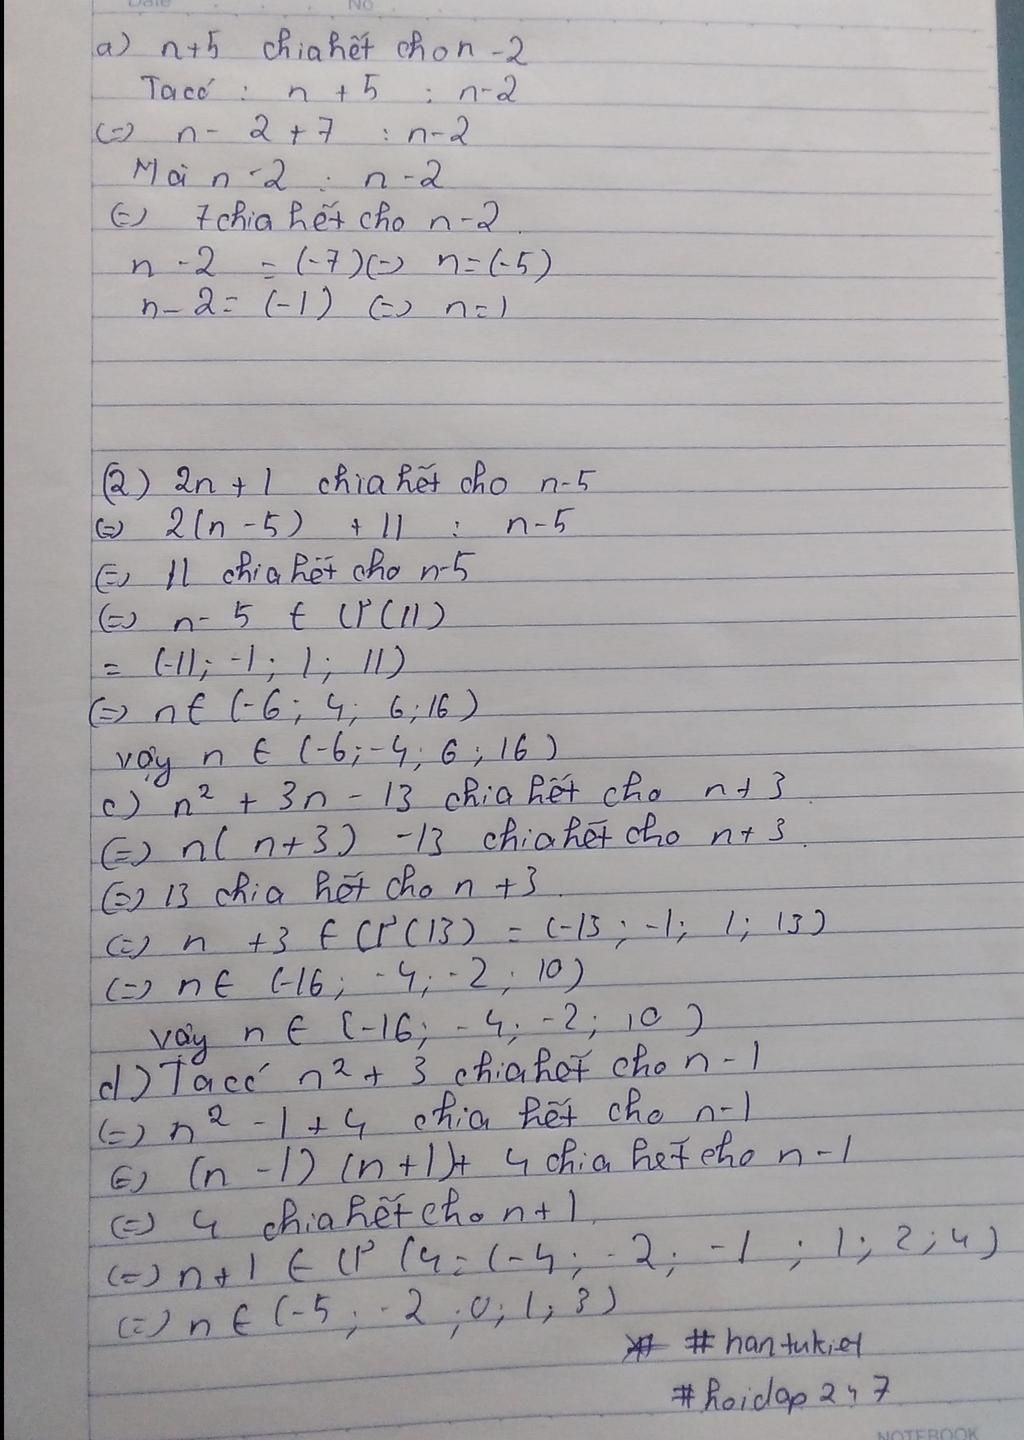 Date No
a) n+5 chia hết cho n-2
Ta có : n + 5 : n-2
(=) n - 2 + 7 : n-2
Mà n-2 : n-2
(=) 7 chia hết cho n-2.
n - 2 = (-7) (=) n = (-5)
n - 2 = (-1) (=) n = 1
(2) 2n + 1 chia hết cho n-5
(=) 2(n-5) + 11 : n-5
(=) 11 chia hết cho n-5
(=) n - 5 ∈ Ư(11)
= (-11; -1; 1; 11)
(=) n ∈ (-6; 4; 6; 16)
vậy n ∈ (-6; -4; 6; 16)
c) n² + 3n - 13 chia hết cho n+3.
(=) n(n+3) -13 chia hết cho n+3.
(=) 13 chia hết cho n+3.
(=) n + 3 ∈ Ư(13) = (-13; -1; 1; 13)
(=) n ∈ (-16; -4; -2; 10)
vậy n ∈ (-16; -4; -2; 10)
d) Ta có n² + 3 chia hết cho n-1
(=) n² - 1 + 4 chia hết cho n-1
(=) (n-1)(n+1) + 4 chia hết cho n-1
(=) 4 chia hết cho n+1.
(=) n+1 ∈ Ư(4 = (-4; -2; -1; 1; 2; 4)
(=) n ∈ (-5; -2; 0; 1; 3)
#hantukiet
#hoidap247
NOTEBOOK